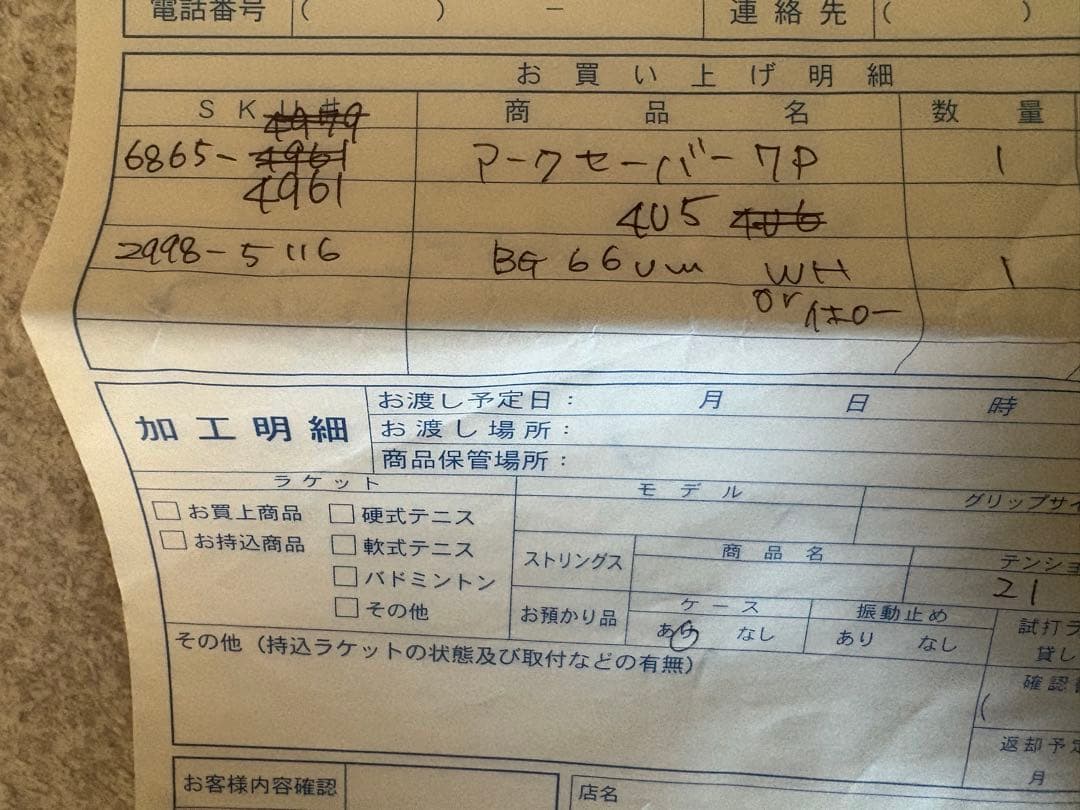 電話番号 ( ) － 連絡先 ( )
お買い上げ明細
SKU# 商品名 数量
4979
6865-4961 アークセーバー7P 1
4961
405 406
2998-5116 BG66um WH 1
or イエロー
加工明細 お渡し予定日： 月 日 時
お渡し場所：
商品保管場所：
ラケット モデル グリップサイ
□お買上商品 □硬式テニス
□お持込商品 □軟式テニス
□バドミントン
□その他
ストリングス 商品名 テンショ
21
お預かり品 ケース 振動止め
あり なし あり なし
試打ラ
貸し
その他（持込ラケットの状態及び取付などの有無）
確認
(
返却予定
月
お客様内容確認 店名